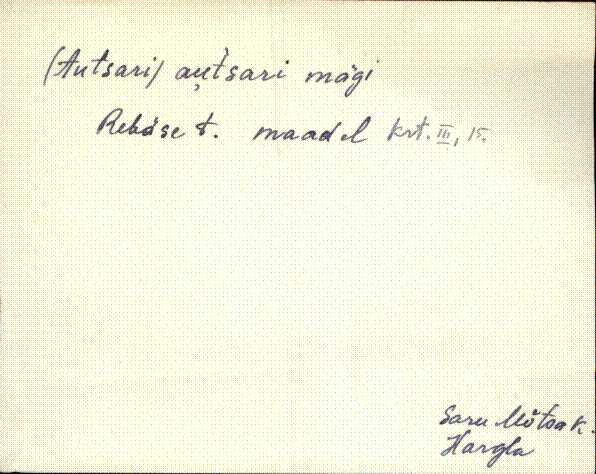 (Autsari) au̯t̀sari mägi
Rebäse t. maadel krt. III, 15.
Saru Mõtsa k.
Hargla